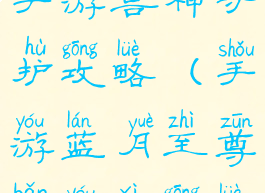 游 兽 神
hù gōng lüè shǒu
护 攻 略 （ 手
yóu lán yuè zhì zūn
游 蓝 月 至 尊